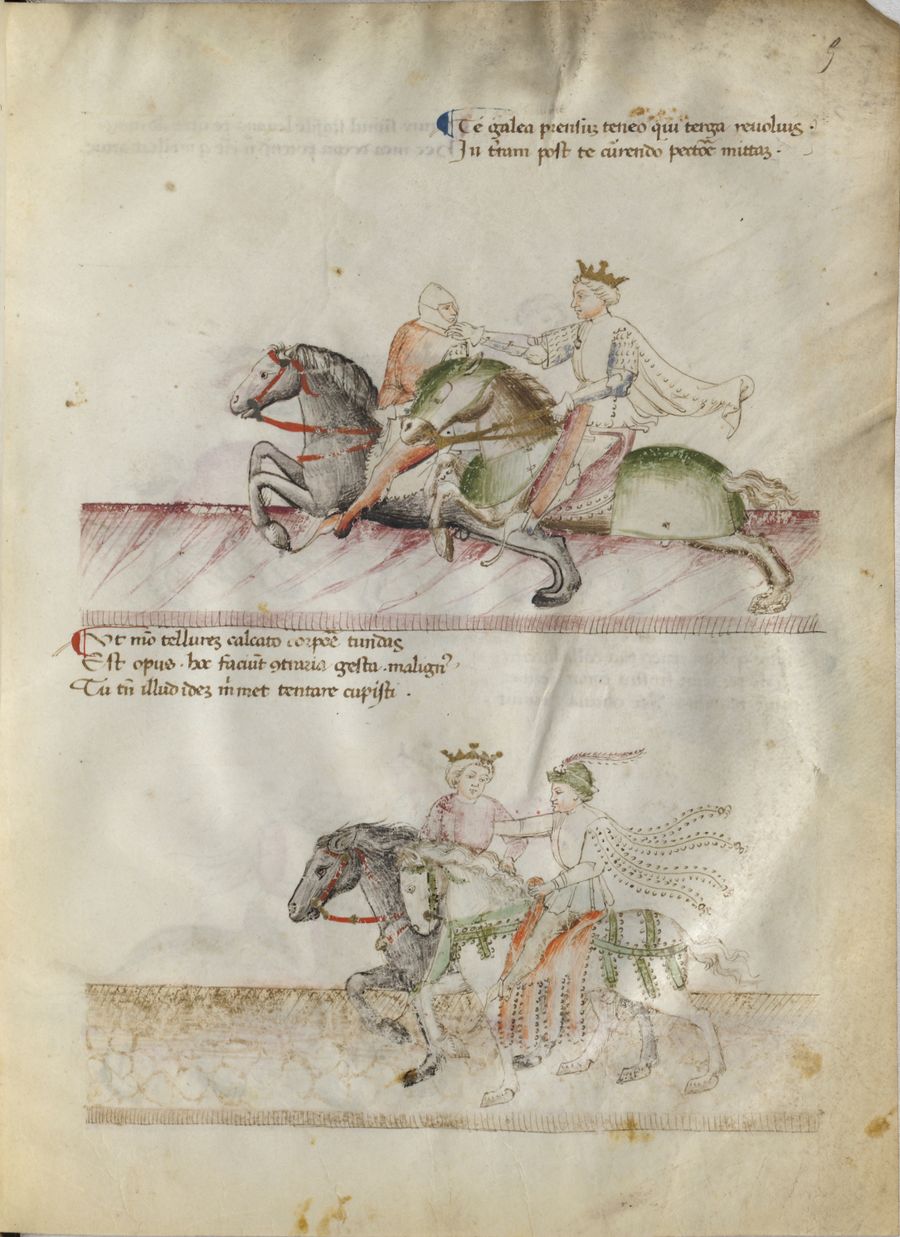 9
Te galea prensuz teneo qui terga revoluis .
In trām post te cūrendo pectōe mittaz .
Vt mō tellurez calcato corpoē tundas
Est opus . hoc faciūt 9traria gesta . malign9
Tu tn̄ illud idez m̄met tentare cupisti .